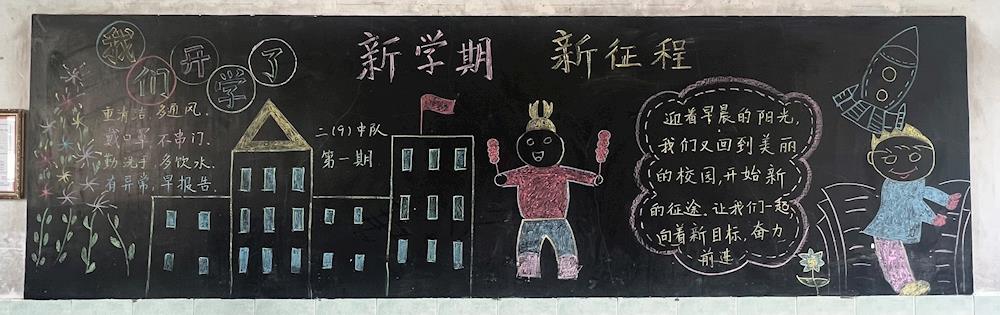 我们开学了
新学期 新征程
重清洁,多通风.
戴口罩 不串门.
勤洗手,多饮水.
有异常,早报告.
二(9)中队
第一期
迎着早晨的阳光,
我们又回到美丽
的校园,开始新
的征途.让我们一起,
向着新目标,奋力
前进